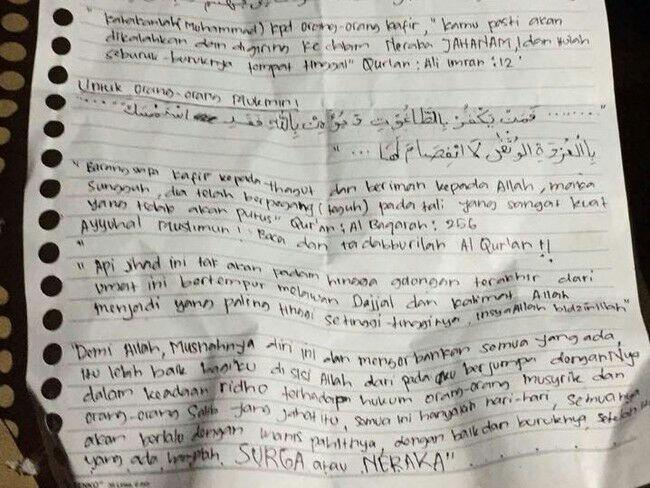 "Katakanlah (Muhammad) kpd orang-orang kafir, "kamu pasti akan
dikalahkan dan digiring ke dalam Neraka JAHANAM, dan itulah
seburuk-buruknya tempat tinggal" Qur'an : Ali Imran : 12
Untuk orang-orang Mukmin!
"........ فَمَنْ يَكْفُرْ بِالطَّاغُوْتِ وَيُؤْمِنْ بِاللّٰهِ فَقَدِ اسْتَمْسَكَ
بِالْعُرْوَةِ الْوُثْقٰى لَا انْفِصَامَ لَهَا ... "
"Barang siapa kafir kepada thagut dan beriman kepada Allah, maka
sungguh, dia telah berpegang (teguh) pada tali yang sangat kuat
yang tidak akan putus" Qur'an : Al Baqarah : 256
Ayyuhal Muslimun! Baca dan tadabburilah Al Qur'an !!
"
"Api jihad ini tak akan padam hingga golongan terakhir dari
umat ini bertempur melawan Dajjal dan kalimat Allah
menjadi yang paling tinggi setinggi-tingginya, insyaAllah bidznillah"
"Demi Allah, Musnahnya diri ini dan mengorbankan semua yang ada,
itu lebih baik bagiku di sisi Allah dari pada aku berjumpa denganNya
dalam keadaan ridho terhadap hukum orang-orang musyrik dan
orang-orang Salib yang jahat itu, semua ini hanyalah hari-hari, semuanya
akan berlalu dengan manis pahitnya, dengan baik dan buruknya, setelah
yang ada hanyalah, SURGA atau NERAKA"